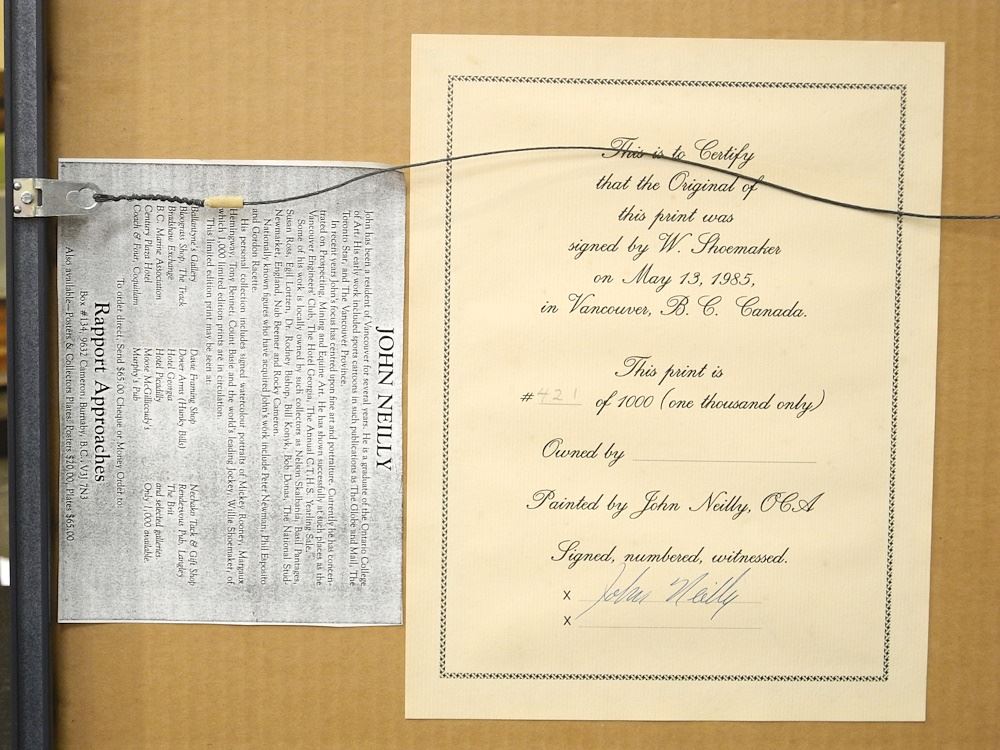 This is to Certify
that the Original of
this print was
signed by W. Shoemaker
on May 13, 1985,
in Vancouver, B. C. Canada.
This print is
# 421 of 1000 (one thousand only)
Owned by
Painted by John Neilly, OCA
Signed, numbered, witnessed.
x John Neilly
x
JOHN NEILLY
John has been a resident of Vancouver for several years. He is a graduate of the Ontario College
of Art. His early work included sports cartoons in such publications as The Globe and Mail, The
Toronto Star, and The Vancouver Province.
In recent years John's focus has centred upon fine art and portraiture. Currently he has concen-
trated on Prospecting, Mining and Equine Art. He has shown successfully at such places as the
Vancouver Engineers' Club, The Hotel Georgia, The Annual C.T.H.S. Yearling Sale.
Some of his work is locally owned by such collectors as Nelson Skalbania, Basil Pantages,
Susan Ross, Egill Lortzen, Dr. Rodney Bishop, Bill Konyk, Bob Donas, The National Stud-
Newmarket, England, Nub Beemer and Rocky Cameron.
Nationally known figures who have acquired John's work include Peter Newman, Phil Esposito
and Gordon Racette.
His personal collection includes signed watercolour portraits of Mickey Rooney, Margaux
Hemingway, Tony Bennet, Count Basie and the world's leading Jockey, Willie Shoemaker, of
which 1,000 limited edition prints are in circulation.
This limited edition print may be seen at:
Ballantyne's Gallery Davie Framing Shop Nechako Tack & Gift Shop
Bluegrass Shop, The Track Dover Arms (Husky Bills) Rendezvous Pub, Langley
Bradshaw Exchange Hotel Georgia The Brit
B.C. Marine Association Hotel Picadilly and selected galleries.
Century Plaza Hotel Moose McGillicudy's Only 1,000 available.
Coach & Four, Coquitlam Murphy's Pub
To order direct, Send $65.00 Cheque or Money Order to:
Rapport Approaches
Box #134, 9632 Cameron, Burnaby, B.C., V3J 7N3
Also available—Posters & Collectors Plates: Posters $20.00, Plates $65.00